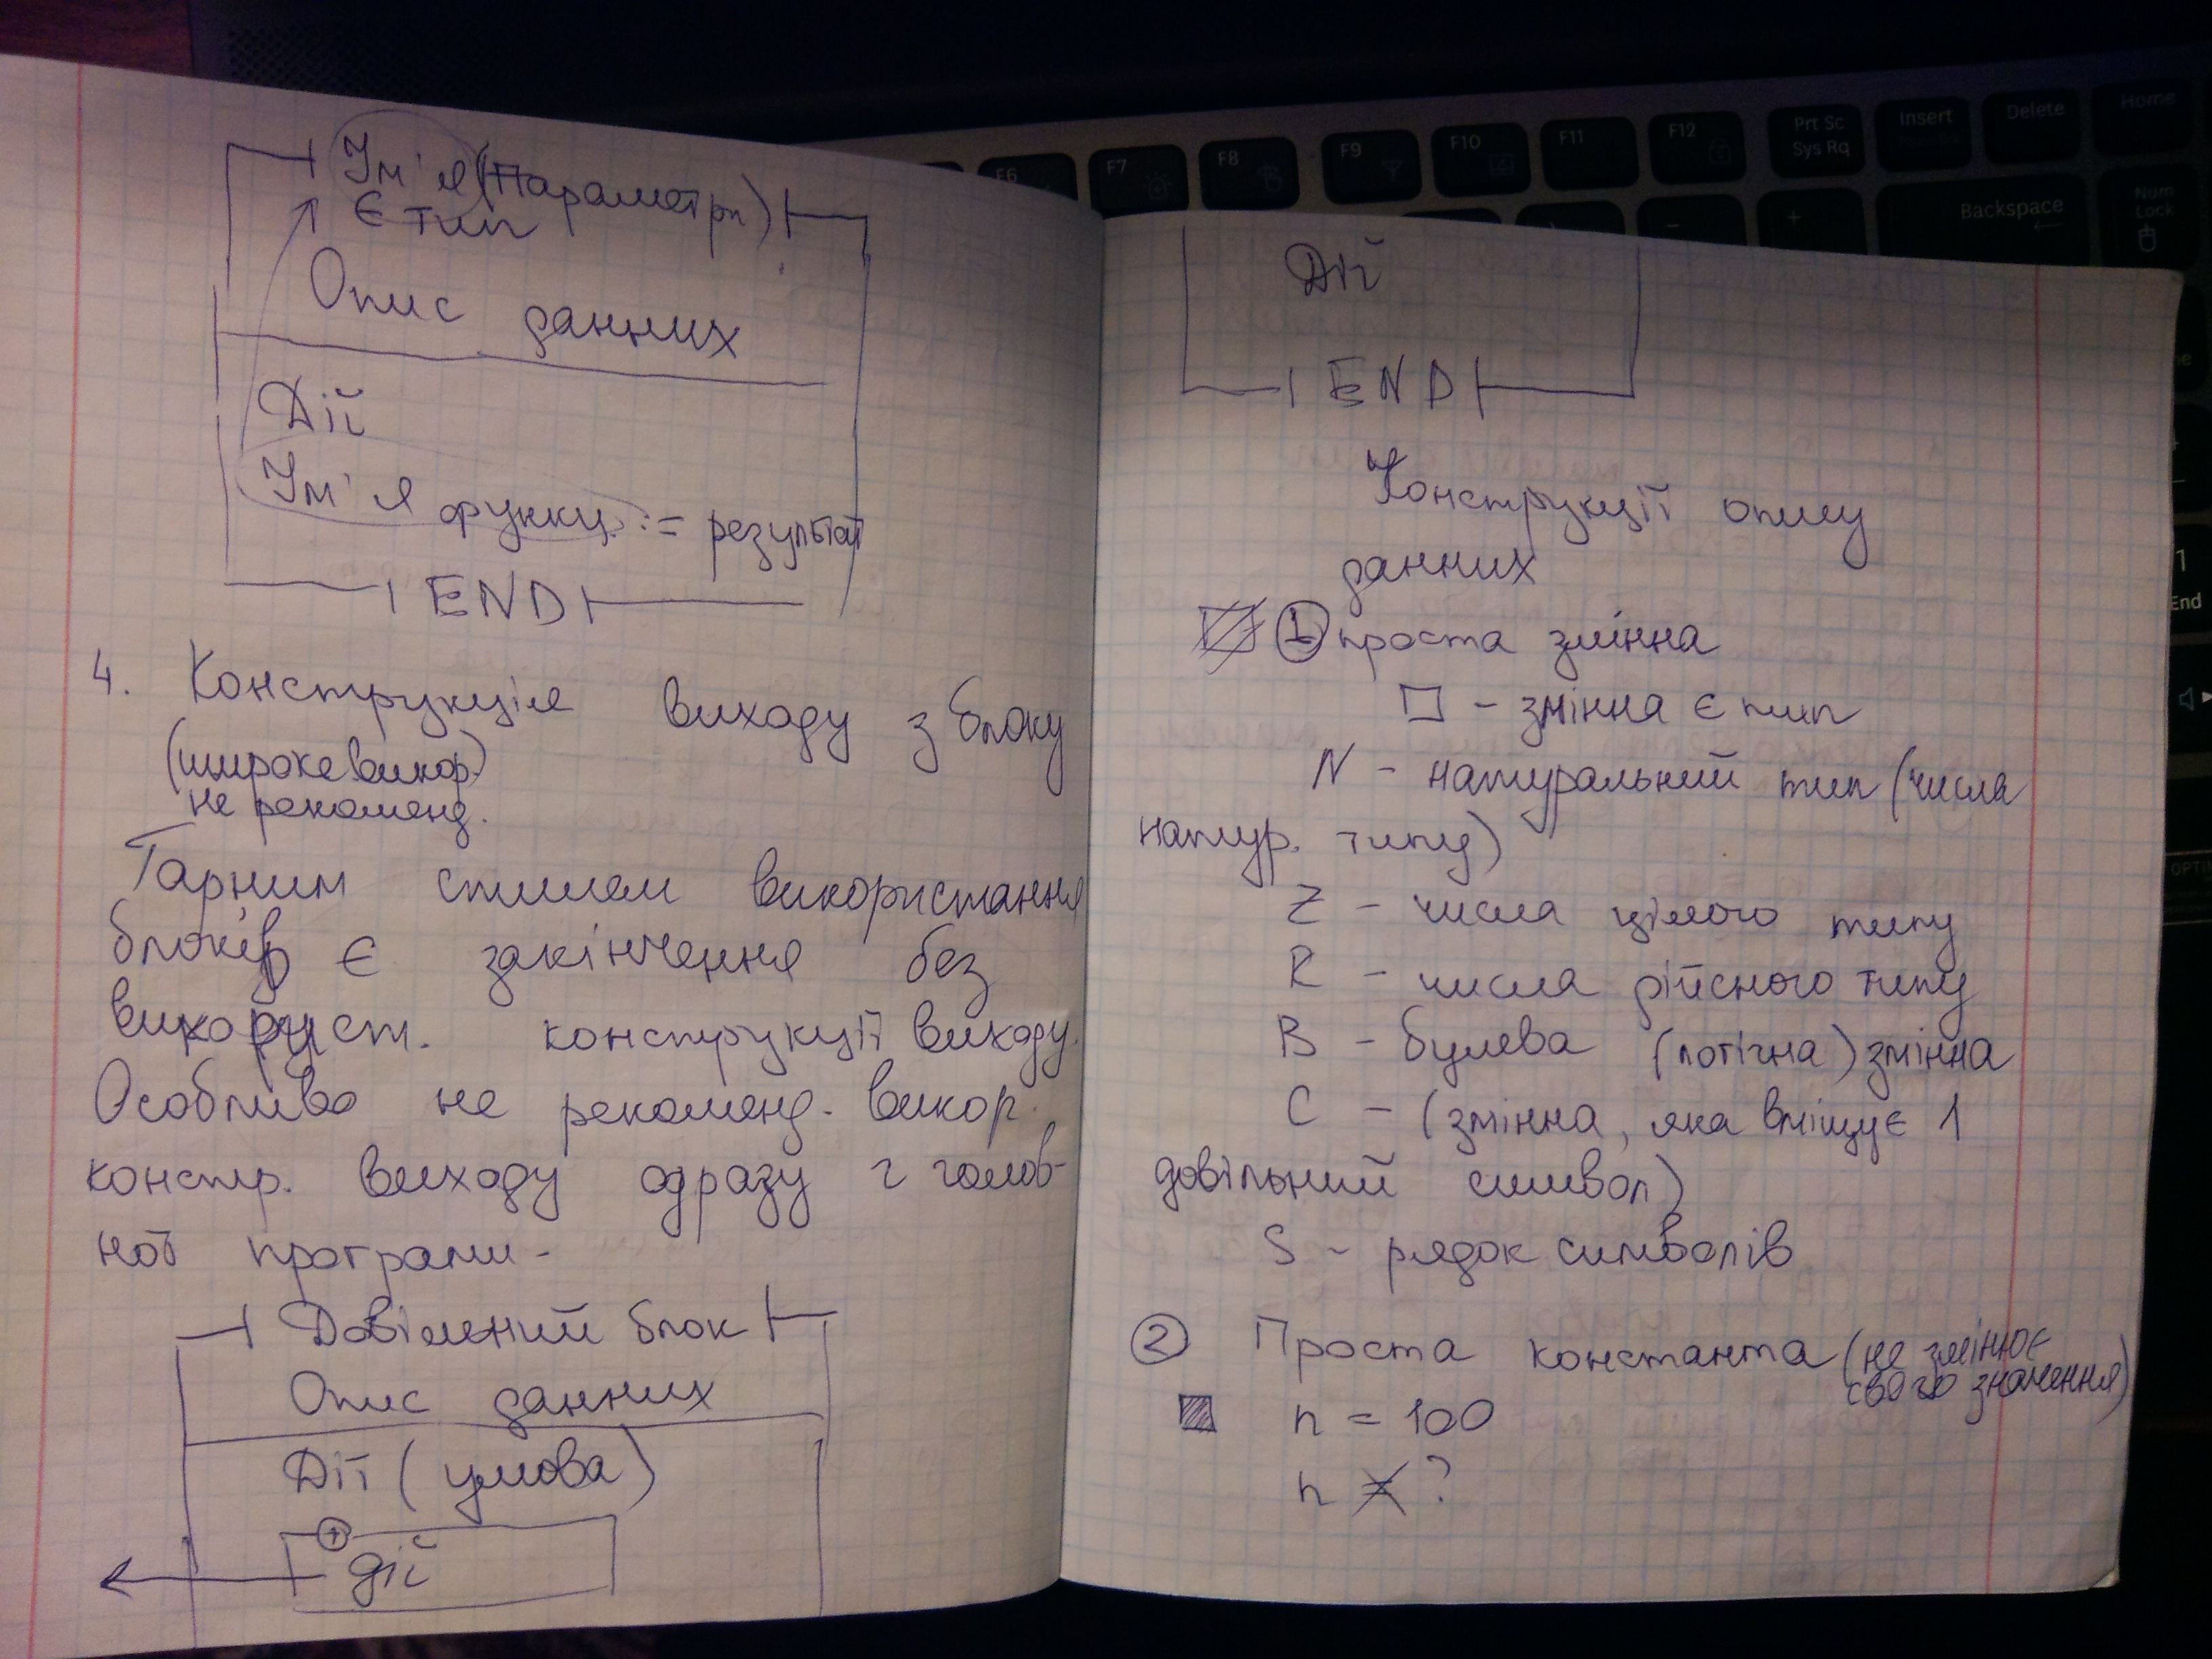 Ім'я (Параметри)
Є тип
Опис данних
Дії
Ім'я функц. := результат
END
4. Конструкція виходу з блоку
(широке викор.)
не рекоменд.
Гарним стилем використання
блоків є закінчення без
використ. конструкції виходу.
Особливо не рекоменд. викор.
констр. виходу одразу з голов-
ної програми.
Довільний блок
Опис данних
Дії (умова)
+
дії
Дії
END
Конструкції опису
данних
1 проста змінна
□ - змінна є тип
N - натуральний тип (числа
натур. типу)
Z - числа цілого типу
R - числа дійсного типу
B - булева (логічна) змінна
C - (змінна, яка вміщує 1
довільний символ)
S - рядок символів
2 Проста константа (не змінює
свого значення)
n = 100
n = ?
F6 F7 F8 F9 F10 F11 F12 Prt Sc Insert Delete Home
Sys Rq
Backspace
Num
Lock
End